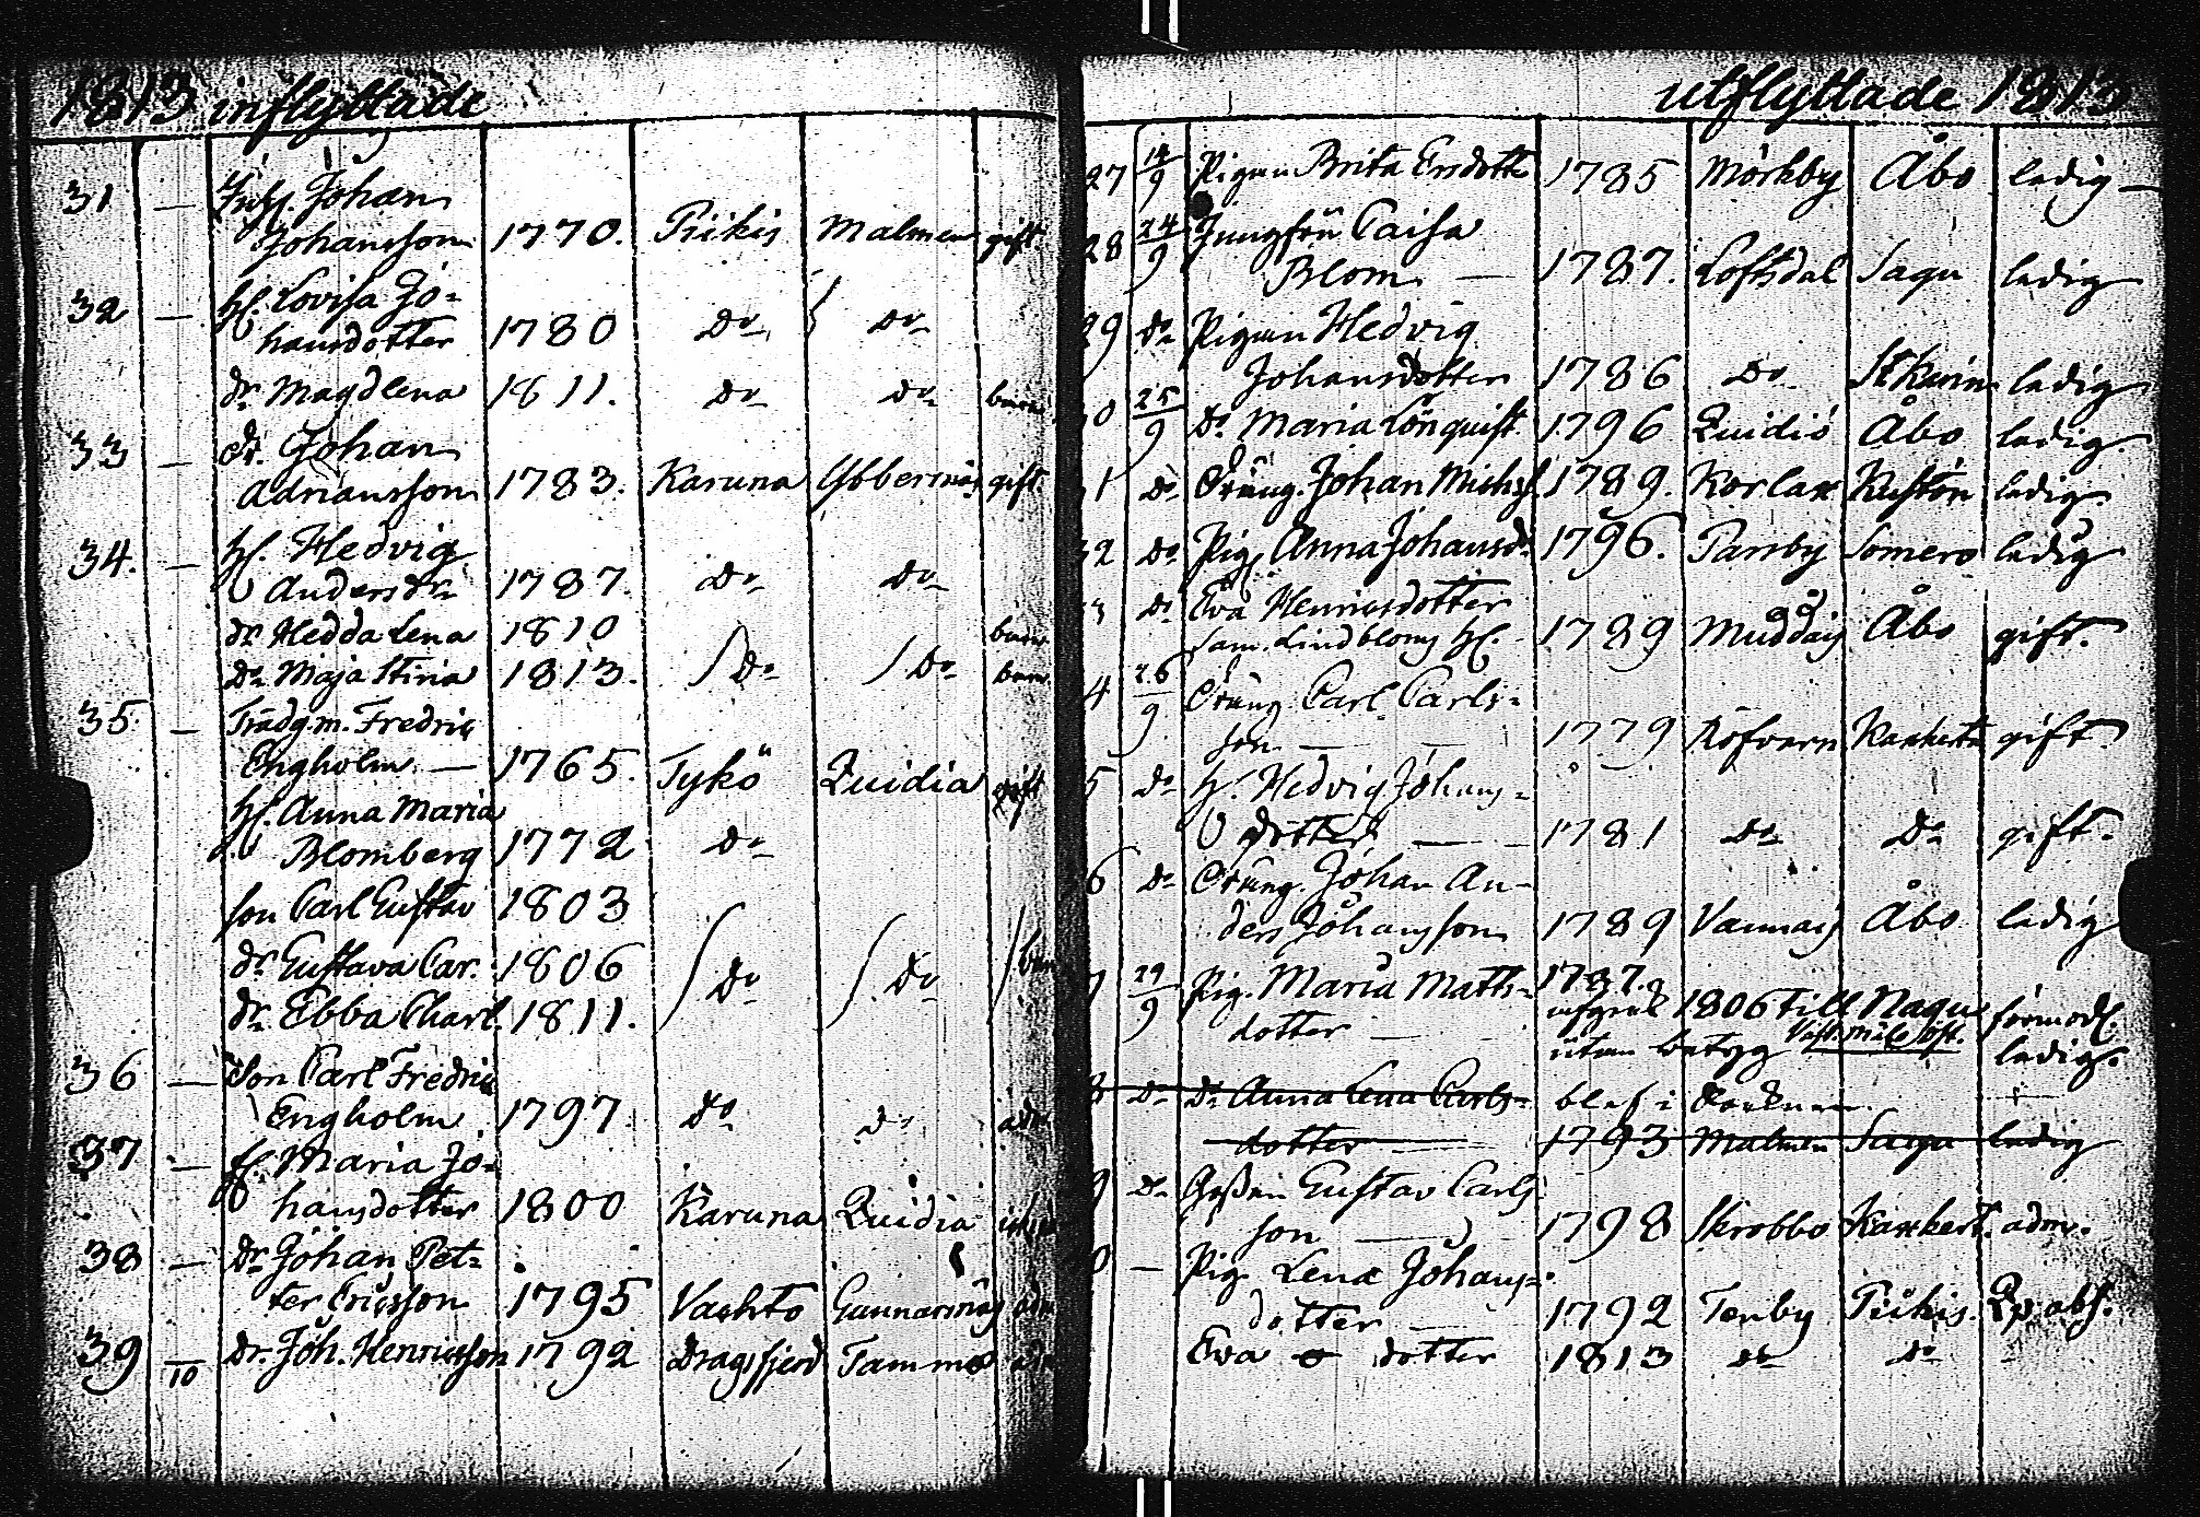 1813 inflyttade
31 — Johan
Johansson 1770. Piikis Malmen gift.
32 — H. Lovisa Jo-
hansdotter 1780 Do Do
dr. Magdlena 1811. Do Do barn
33 — dr. Johan
Adriansson 1783. Karuna Ybbernäs gift.
34. — H. Hedvig
Andersdr 1787. Do Do
dr. Hedda Lena 1810 barn
Dr. Maja Stina 1813. Do Do barn
35 — Trädg.m. Fredric
Engholm — 1765. Tykö Quidia gift
H. Anna Maria
Blomberg 1772 Do
son Carl Gustav 1803
dr. Gustava Car. 1806 Do Do barn
dr. Ebba Charl. 1811.
36 — Son Carl Fredric
Engholm 1797. Do Do adm
37 — Maria Jo-
hansdotter 1800 Karuna Quidia
38 — Dr. Johan Pet-
ter Ericsson 1795 Vachto Gunnarsnäs adm
39 10 Dr. Joh. Henricsson 1792 Dragsfjerd Tammo adm
utflyttade 1813
27 14/9 Pigan Brita Ersdottr 1785 Mörkby Åbo ledig —
28 24/9 Jungfru Caisa
Blom — 1787. Loftsdal Sagu ledig
29 Do Pigan Hedvig
Johansdotter 1786 Do St Karins ledig
0 25/9 Do Maria Lönquist 1796 Quidiö Åbo ledig.
1 Do Dräng. Johan Michs. 1789. Korlax Kustön ledig.
32 Do Pig. Anna Johansdr 1796. Parsby Somero ledig
3 Do Eva Henricsdotter
Sam. Lindbloms H. 1789 Muddais Åbo gift.
4 26/9 Dräng Carl Carls-
son — 1779 Röfvarn Kankerta gift.
5 Do H. Hedvig Johans-
dotter — 1781 Do Do gift.
6 Do Dräng. Johan An-
ders Johansson 1789 Vannais Åbo ledig
7 29/9 Pig. Maria Matts- 1787.
dotter — 1806 till Nagu
utan betyg förmodl. ledig.
8 Do Do Anna Lena Carls- blef i
dotter — 1793 Malmen Sagu ledig
9 Do Gossen Gustav Carls
son — 1798 Skrobbo Kankert. adm.
0 — Pig. Lena Johans-
dotter — 1792 Tenby Piikis. Qp. abs.
Eva dotter 1813 Do Do